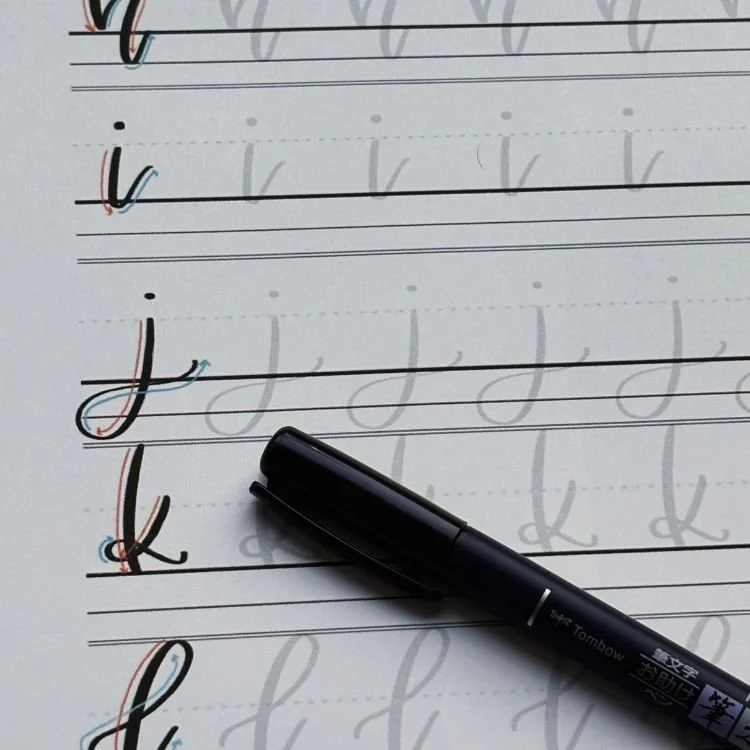 h h h h h
i i i i i
j j j j j
k k k k k
l l l l l
Tombow
筆文字
お助け
ペン
筆